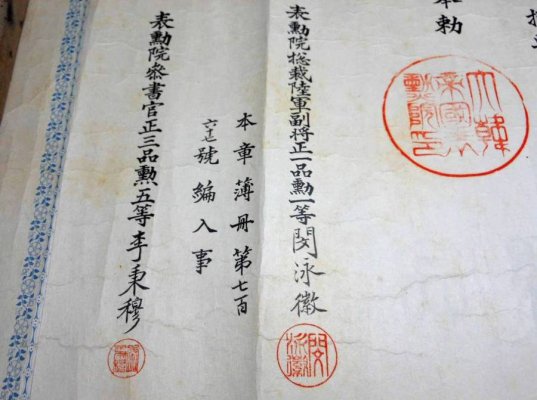 奉勅
大韓帝國表勳院印
表勳院捴裁陸軍副將正一品勳一等閔泳徽
閔泳徽
本章簿冊第七百
號編入事
表勳院叅書官正三品勳五等李秉穆